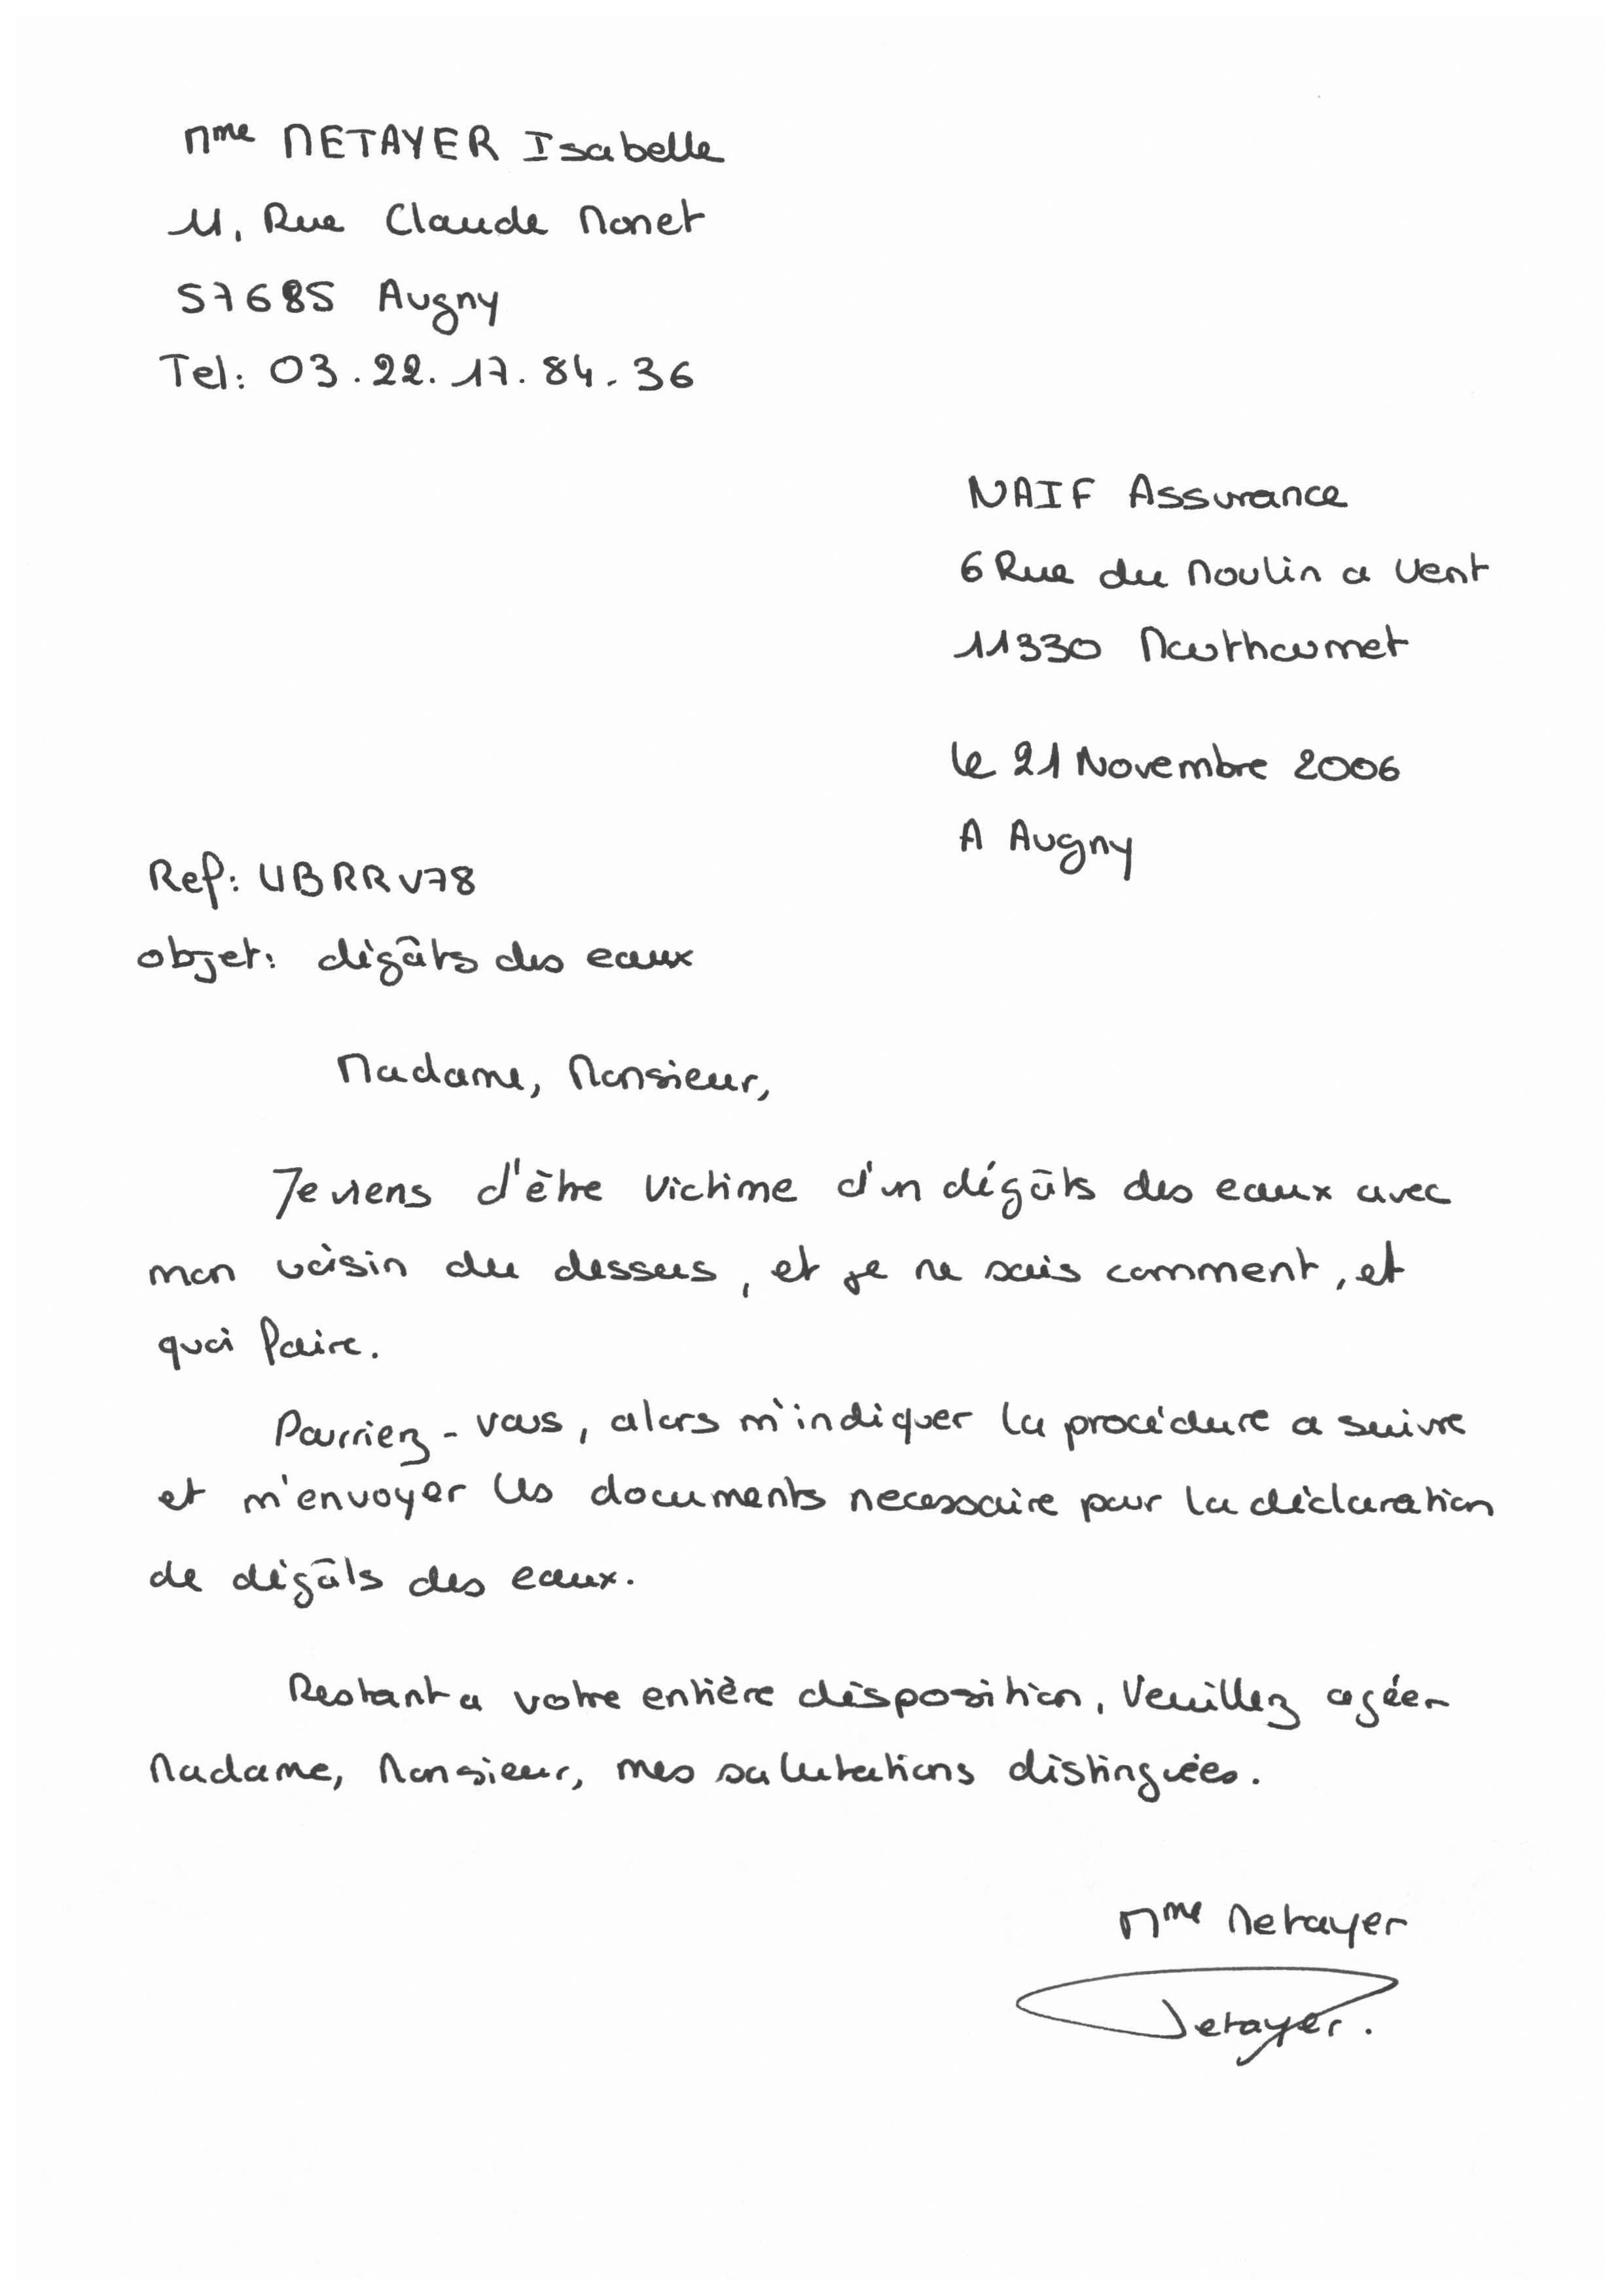 Mme METAYER Isabelle
11, Rue Claude Monet
57685 Augny
Tel: 03.22.17.84.36
NAIF Assurance
6 Rue du Moulin a Vent
11330 Mouthoumet
le 21 Novembre 2006
A Augny
Ref: UBRRV78
objet: dégâts des eaux
Madame, Monsieur,
Je viens d'être victime d'un dégâts des eaux avec
mon voisin du dessus, et je ne sais comment, et
quoi faire.
Pourriez-vous, alors m'indiquer la procédure a suivre
et m'envoyer les documents necessaire pour la déclaration
de dégâts des eaux.
Restant a votre entière disposition, Veuillez agéer
Madame, Monsieur, mes salutations distinguées.
Mme Metayer
Metayer.